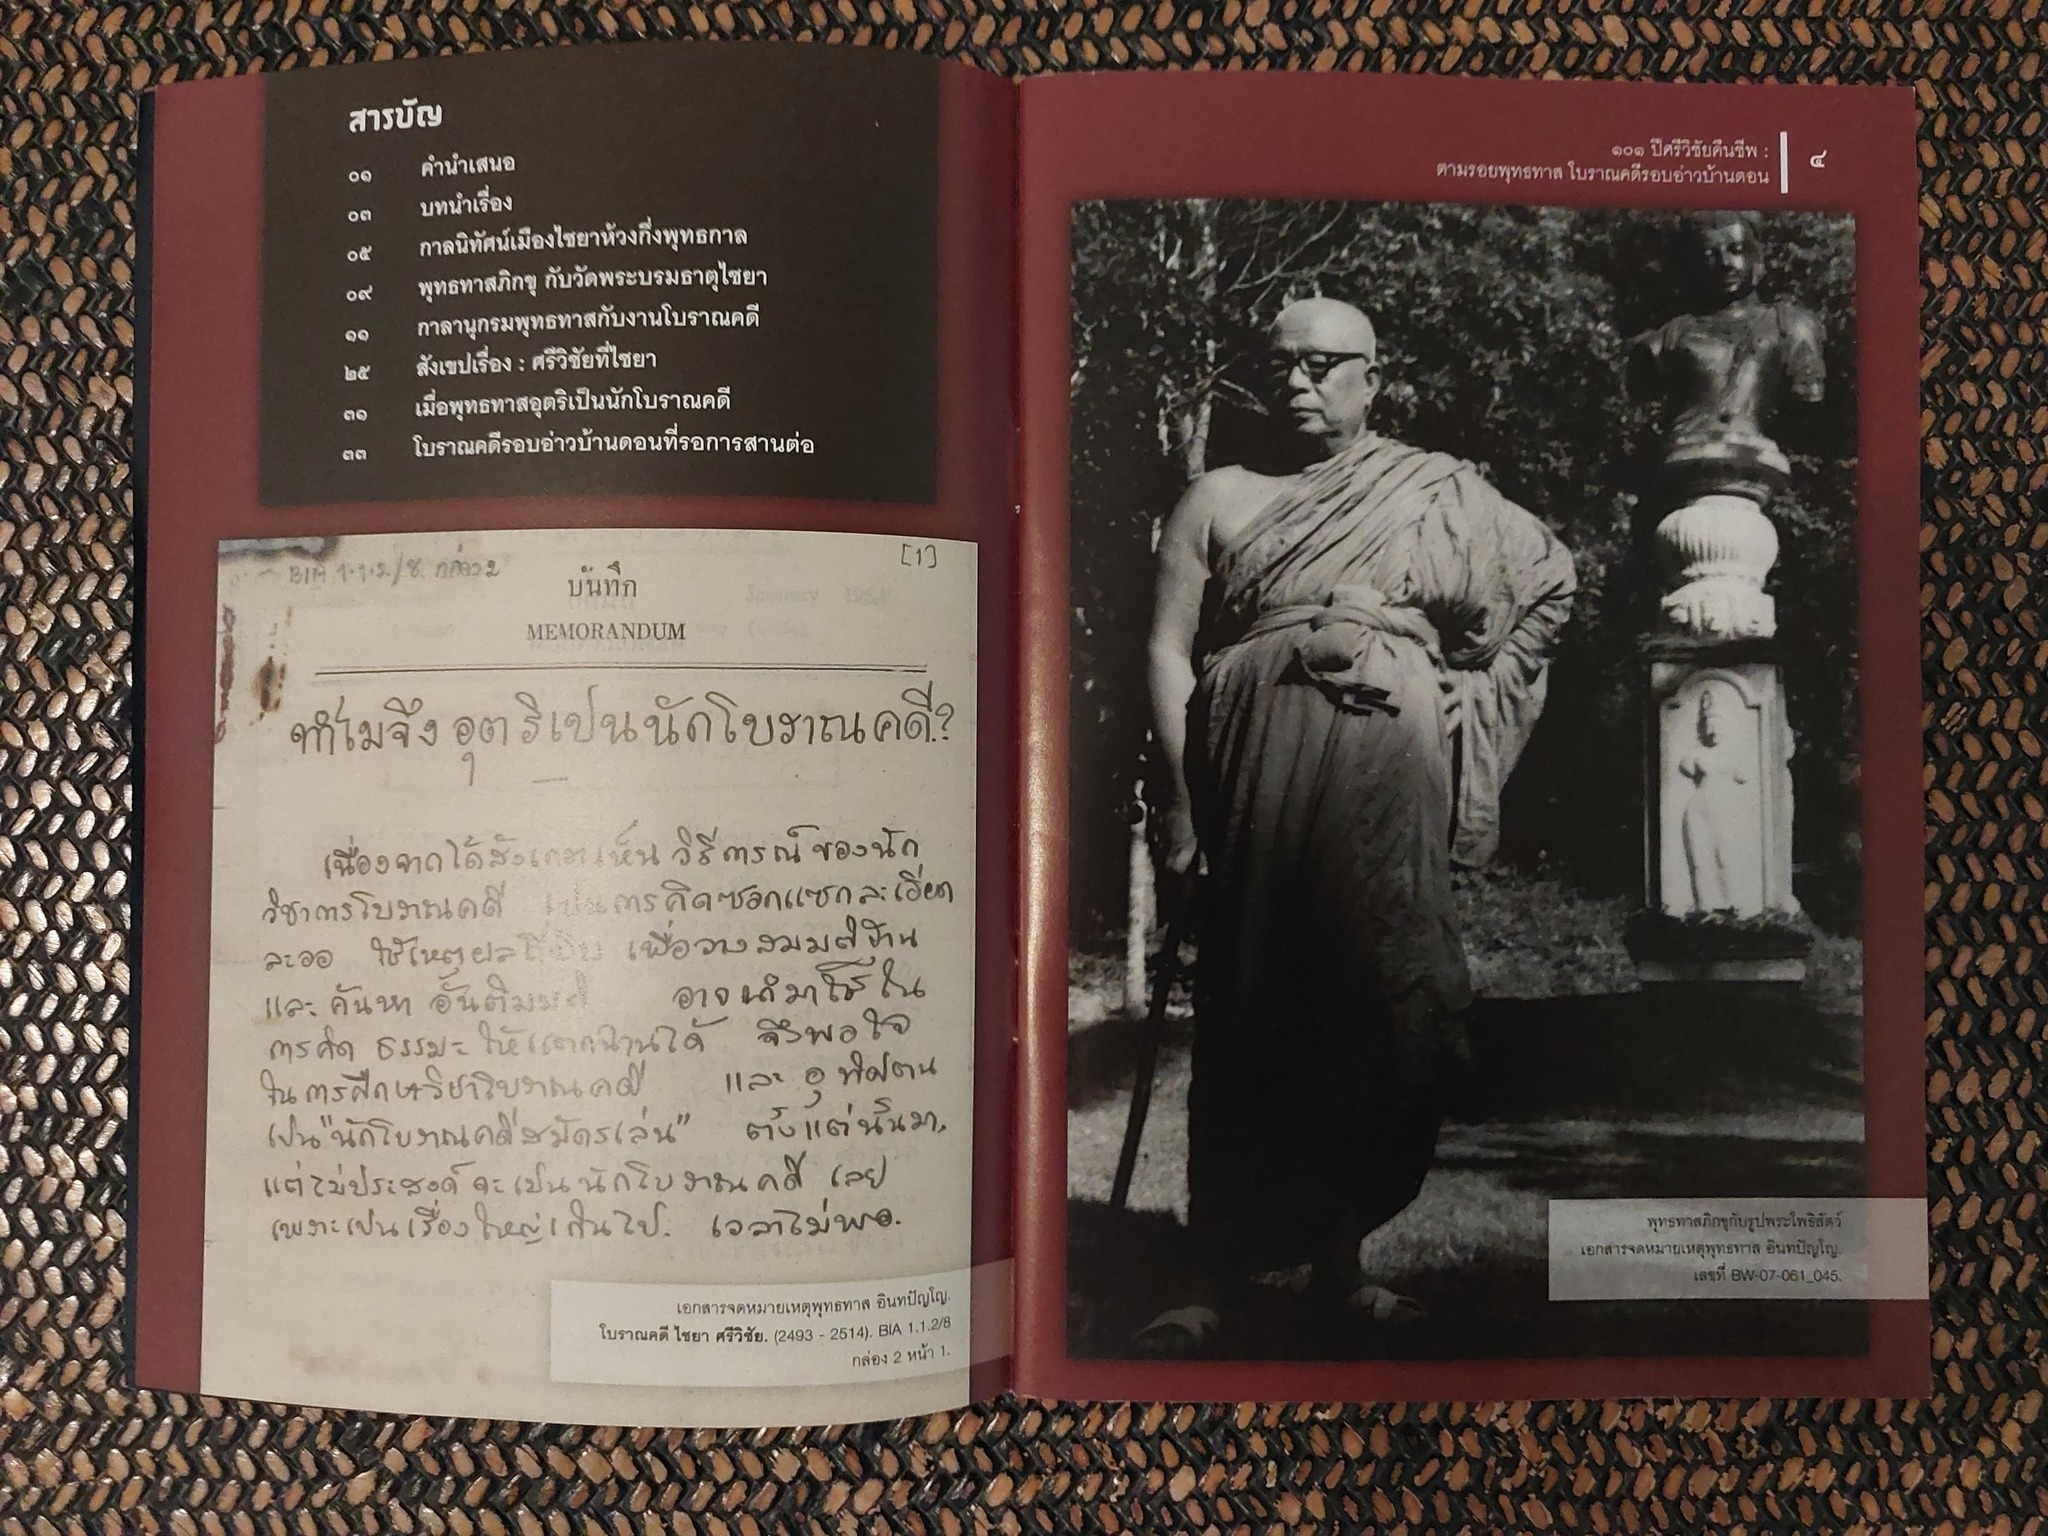 สารบัญ
๐๑ คำนำเสนอ
๐๓ บทนำเรื่อง
๐๕ กาลนิทัศน์เมืองไชยาห้วงกึ่งพุทธกาล
๐๙ พุทธทาสภิกขุ กับวัดพระบรมธาตุไชยา
๑๑ กาลานุกรมพุทธทาสกับงานโบราณคดี
๒๕ สังเขปเรื่อง : ศรีวิชัยที่ไชยา
๓๑ เมื่อพุทธทาสอุตริเป็นนักโบราณคดี
๓๓ โบราณคดีรอบอ่าวบ้านดอนที่รอการสานต่อ
BIA 1.1.2/8 กล่อง 2
[1]
บันทึก
MEMORANDUM
ทำไมจึงอุตริเป็นนักโบราณคดี?
เนื่องจากได้สังเกตเห็น วิธีการณ์ของนัก
วิชาการโบราณคดี เป็นการคิดซอกแซกละเอียด
ละออ ใช้เหตุผล เพื่อวางสมมติฐาน
และค้นหา อันติมะ อาจเอามาใช้ใน
การคิด ธรรมะ ให้แตกฉานได้ จึงพอใจ
ในการศึกษาวิชาโบราณคดี และ อุทิศตน
เป็น"นักโบราณคดีสมัครเล่น" ตั้งแต่นั้นมา.
แต่ไม่ประสงค์จะเป็นนักโบราณคดี เลย
เพราะเป็นเรื่องใหญ่เกินไป. เวลาไม่พอ.
เอกสารจดหมายเหตุพุทธทาส อินทปัญโญ.
โบราณคดี ไชยา ศรีวิชัย. (2493 - 2514). BIA 1.1.2/8
กล่อง 2 หน้า 1.
๑๐๑ ปีศรีวิชัยคืนชีพ :
ตามรอยพุทธทาส โบราณคดีรอบอ่าวบ้านดอน
๔
พุทธทาสภิกขุกับรูปพระโพธิสัตว์
เอกสารจดหมายเหตุพุทธทาส อินทปัญโญ.
เลขที่ BW-07-061_045.